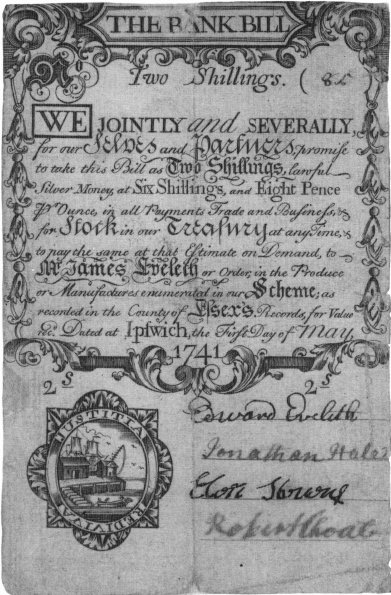 THE BANK BILL
No Two Shillings. ( 85
WE JOINTLY and SEVERALLY,
for our Selves and Partners, promise
to take this Bill as Two Shillings, lawful
Silver Money, at Six Shillings, and Eight Pence
P Ounce, in all Payments Trade and Business, &
for Stock in our Treasury at any Time, &
to pay the same at that Estimate on Demand, to
Mr James Eveleth or Order, in the Produce
or Manufactures enumerated in our Scheme; as
recorded in the County of Essex's, Records, for Value
rec. Dated at Ipswich, the First Day of May,
1741
2s 2s
JUSTITIA REDIVIVA
Edward Evelith
Jonathan Hale
Robert Choat